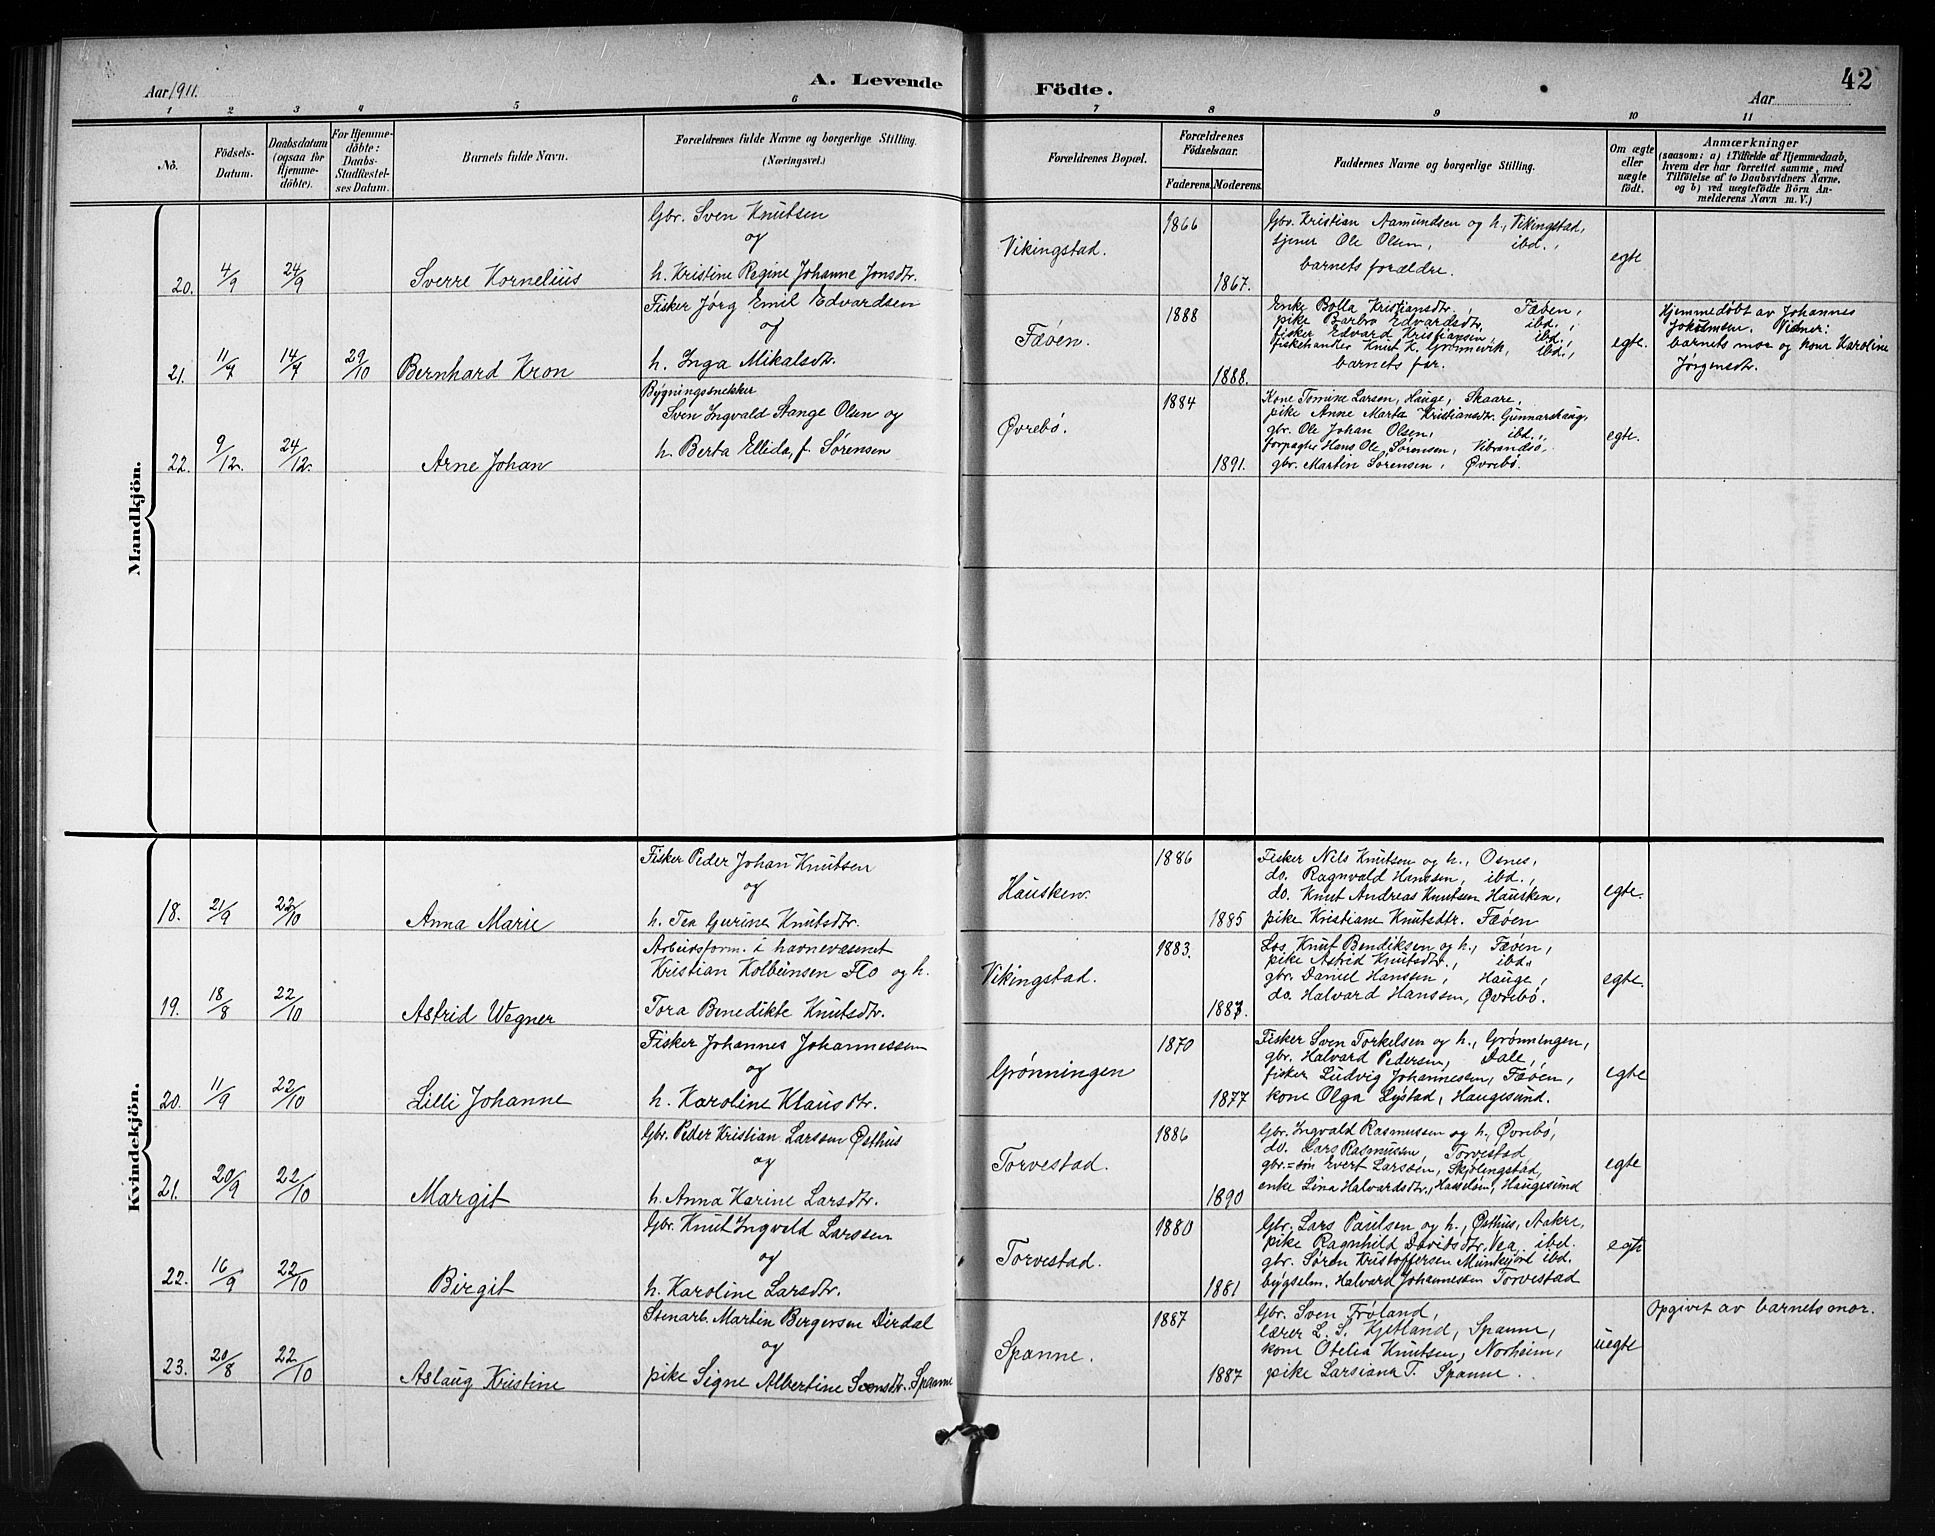 Aar 1911.
A. Levende Födte.
42
Aar
1 2 3 4 5 6 7 8 9 10 11
No.
Födsels-Datum.
Daabsdatum (ogsaa för Hjemme-döbte).
For Hjemme-döbte: Daabs-Stadfæstel-ses Datum.
Barnets fulde Navn.
Forældrenes fulde Navne og borgerlige Stilling. (Næringsvei.)
Forældrenes Bopæl.
Forældrenes Födselsaar.
Faderens. Moderens.
Faddernes Navne og borgerlige Stilling.
Om ægte eller uægte födt.
Anmærkninger
(saasom: a) i Tilfælde af Hjemmedaab,
hvem der har forrettet samme, med
Tilföielse af to Daabsvidners Navne,
og b) ved uegtefödte Börn An-
melderens Navn m. V.)
Mandkjön.
20. 4/9 24/9 Sverre Kornelius
Gbr. Sven Knutsen
og
h. Kristine Regine Johanne Jonsdtr.
Vikingstad.
1866
1867.
Gbr. Kristian Aamundsen og h., Vikingstad,
tjener Ole Olsen, ibd.,
barnets forældre.
egte
21. 11/7 14/7 29/10 Bernhard Kron
Fisker Jörg Emil Edvardsen
og
h. Inga Mikalsdtr.
Fæöen.
1888
1888.
Enke Bolla Kristiansdtr., Fæöen,
pike Barbro Edvardsdtr., ibd.,
fisker Edvard Kristiansen, ibd.,
fiskehandler Knut K. Grønnevik, ibd.,
barnets far.
egte.
Hjemmedøbt av Johannes
Jakobsen. Vidner:
barnets mor og kone Karoline
Jørgensdtr.
22. 9/12. 24/12. Arne Johan
Bygningssnekker
Sven Ingvald Stange Olsen og
h. Berta Ellida, f. Sørensen
Øvrebö.
1884
1891.
Kone Tomine Larsen, Hauge, Skaare,
pike Anne Marta Kristiansdtr. Gunnarshaug,
gbr. Ole Johan Olsen, ibd.,
forpagter Hans Ole Sørensen, Vibrandsö,
gbr. Martin Sørensen, Øvrebö.
egte.
Kvindekjön.
18. 21/9 22/10 Anna Marie
Fisker Peder Johan Knutsen
og
h. Tea Gurine Knutsdtr.
Hausken.
1886
1885
Fisker Nils Knutsen og h., Osnes,
do. Ragnvald Hanssen, ibd.,
do. Knut Andreas Knutsen Hausken,
pike Kristiane Knutsdtr. Fæöen
egte.
19. 18/8 22/10 Astrid Wegner
Arbeidsform. i havnevæsenet
Kristian Kolbensen Flo og h.
Tora Benedikte Knutsdtr.
Vikingstad.
1883.
1887.
Los Knut Bendiksen og h., Fæöen,
pike Astrid Knutsdtr., ibd.,
gbr. Daniel Hanssen, Hauge,
do. Halvard Hanssen, Øvrebö.
egte.
20. 11/9 22/10 Lilli Johanne
Fisker Johannes Johannessen
og
h. Karoline Klausdtr.
Grønningen
1870
1877
Fisker Sven Torkelsen og h., Grønningen,
gbr. Halvard Pedersen, Dale,
fisker Ludvig Johannessen, Fæöen,
kone Olga Lystad, Haugesund.
egte
21. 20/9 22/10 Margit
Gbr. Peder Kristian Larssen Østhus
og
h. Anna Karine Larsdtr.
Torvestad.
1886
1890
Gbr. Ingvald Rasmussen og h., Øvrebö,
do. Lars Rasmussen, Torvestad,
gbr.=søn Evert Larssen, Skjölingstad,
enke Lina Halvardsdtr., Hasselöen, Haugesund
egte
22. 16/9 22/10 Birgit
Gbr. Knut Ingvald Larssen
og
h. Karoline Larsdtr.
Torvestad.
1880
1881
Gbr. Lars Paulsen og h., Østhus, Aakre,
pike Ragnhild Davidsdtr. Vea, ibd.
gbr. Søren Kristoffersen Munkejord ibd.
bygselm. Halvard Johannessen Torvestad
egte
23. 20/8 22/10 Aslaug Kristine
Stenarb. Martin Bergersen Dirdal
og
pike Signe Albertine Svensdtr. Spanne
Spanne.
1887
1887
Gbr. Sven Frøland,
lærer L. S. Kjetland, Spanne,
kone Otelia Knutsen, Norheim,
pike Larsiana T. Spanne.
uegte
Opgivet av barnets mor.